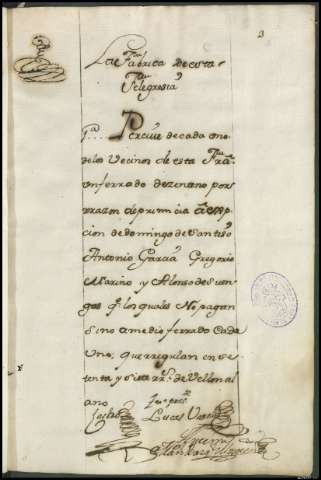 3
La Fabrica de esta
Felegresia
1ª... Percive de cada uno
de los Vecinos de esta Frâ.
un ferrado de zenteno por
razon de primicia a exsep
cion de domingo de Santiso
Antonio Garcia Gregorio
Mariño y Alonso de
gas q.e los quales No pagan
sino a medio ferrado Cada
Uno, que rregulan en se
tenta y siete rr.s de Vellon al
ano
Lucas